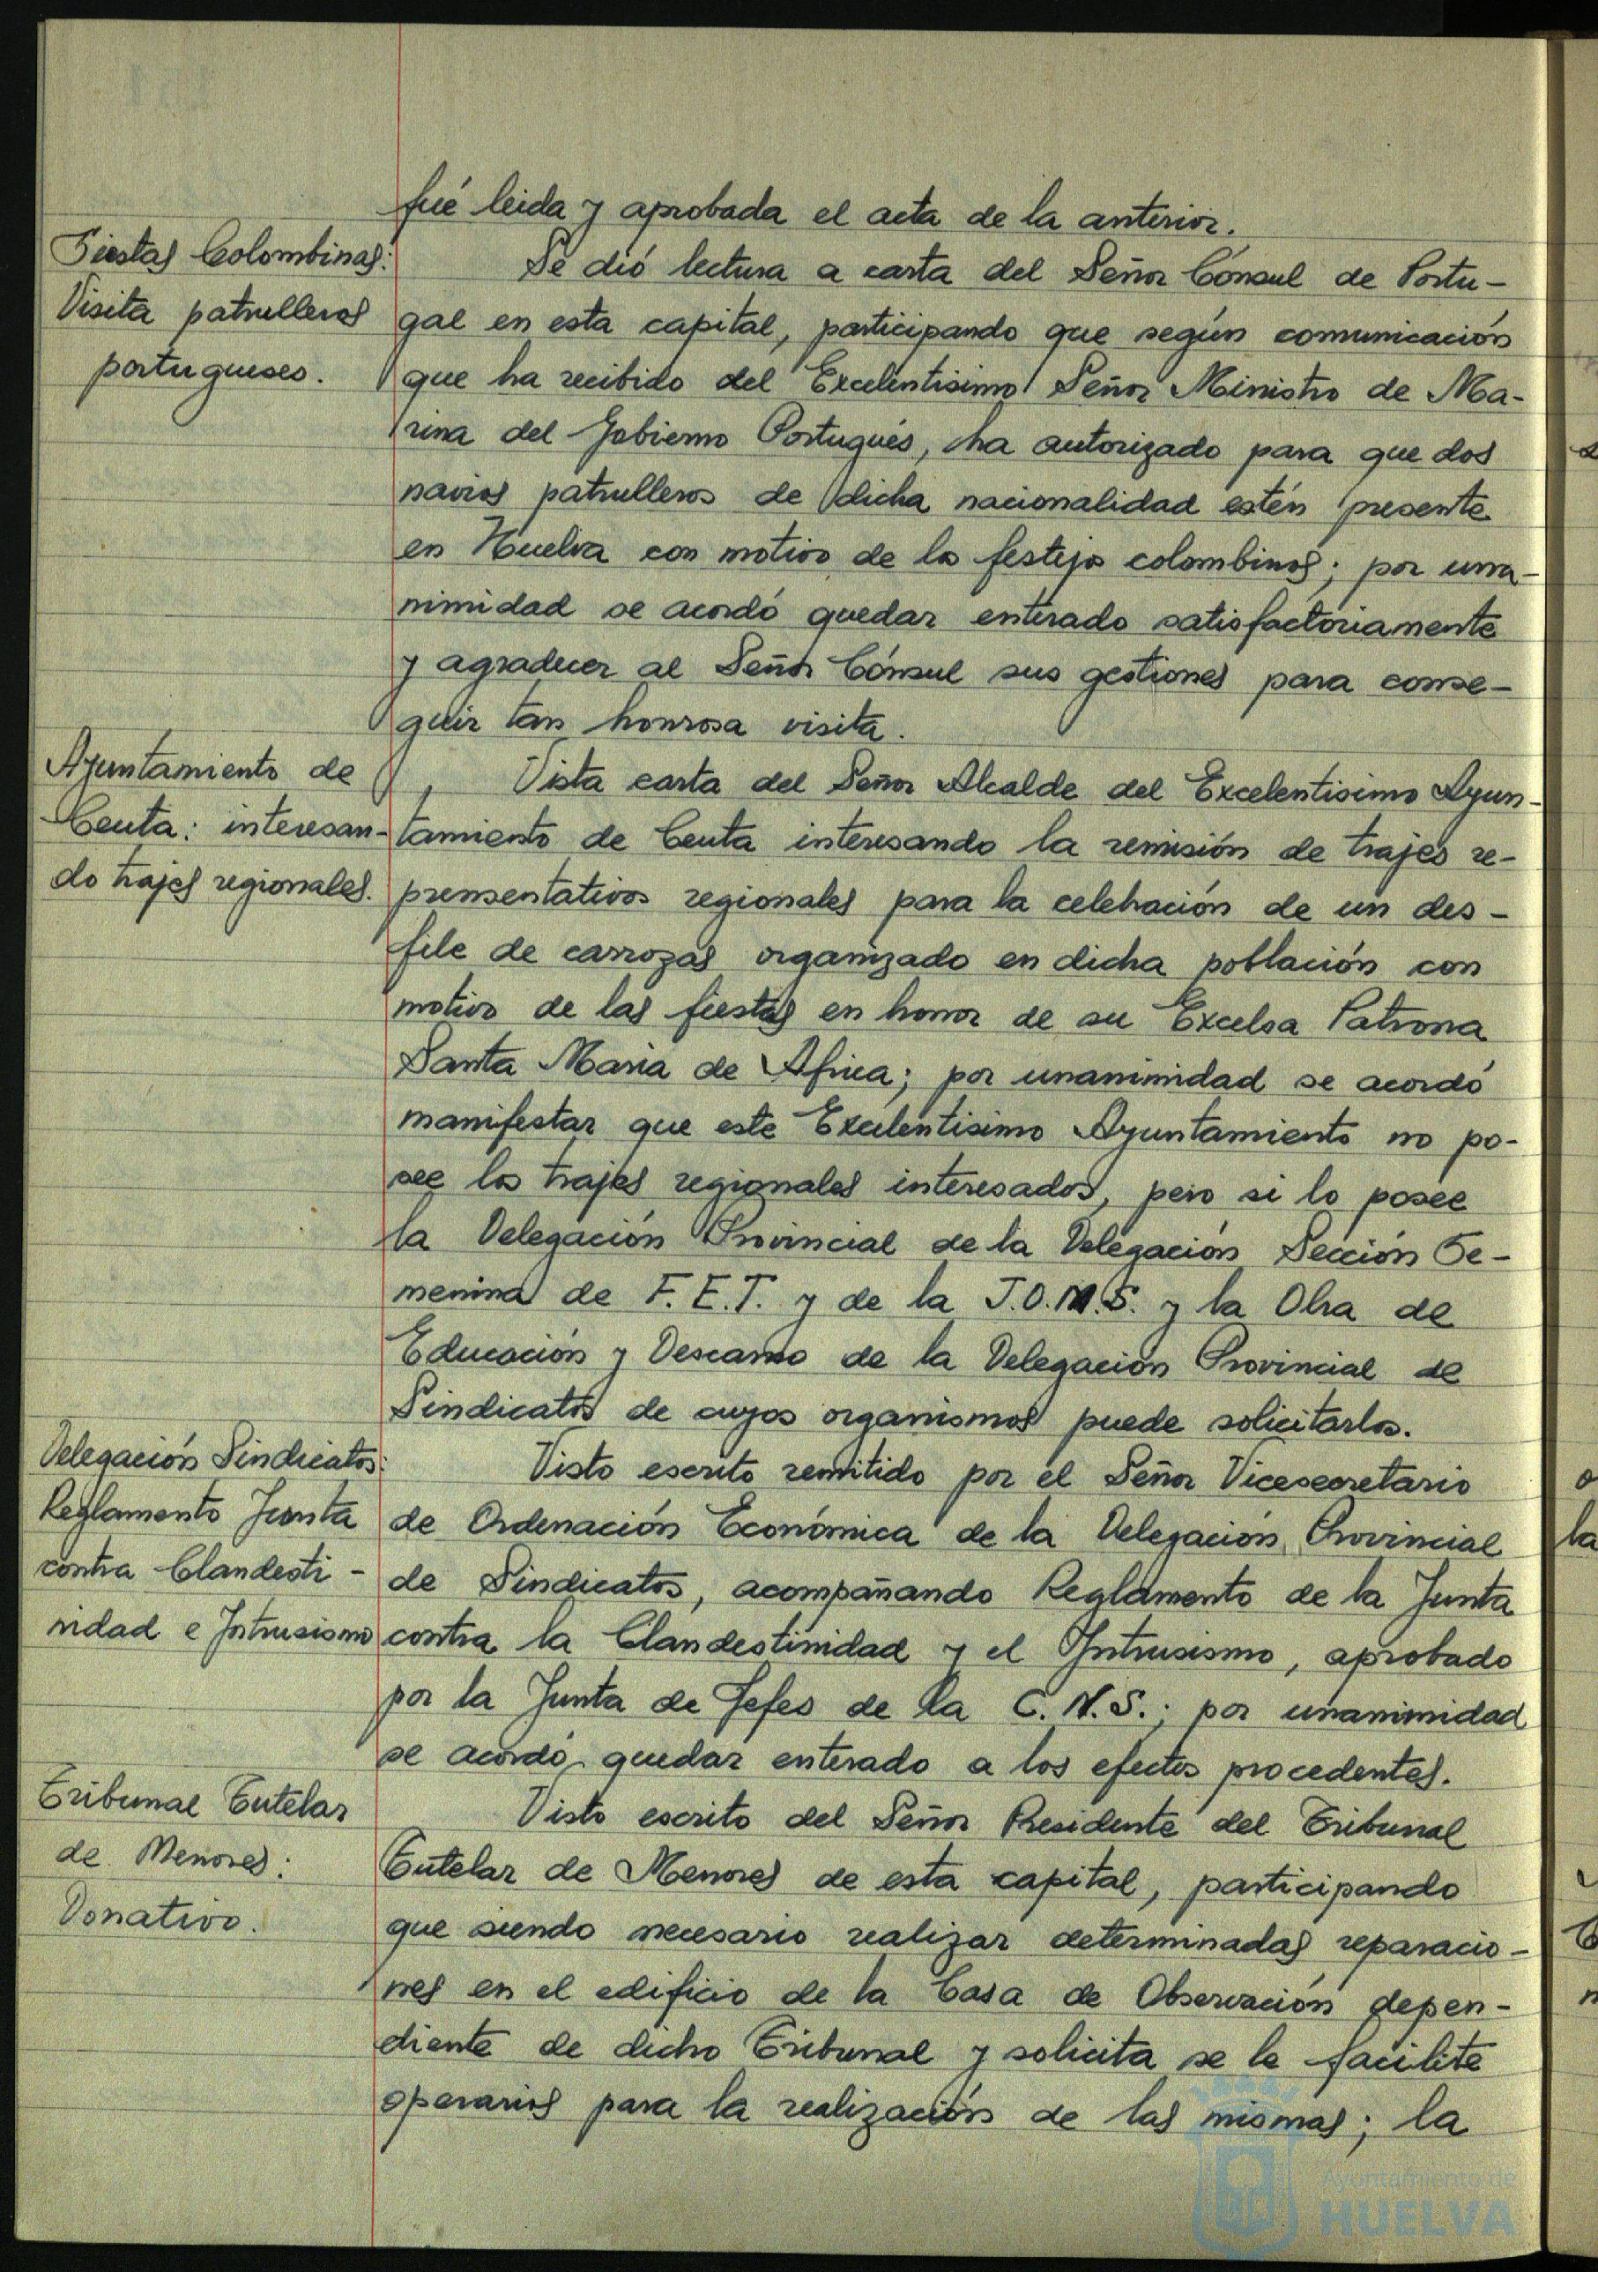 fué leida y aprobada el acta de la anterior.
Fiestas Colombinas:
Visita patrulleros
portugueses.
Se dió lectura a carta del Señor Cónsul de Portu-
gal en esta capital, participando que según comunicación
que ha recibido del Excelentisimo Señor Ministro de Ma-
rina del Gobierno Portugués, ha autorizado para que dos
navios patrulleros de dicha nacionalidad estén presente
en Huelva con motivo de los festejos colombinos; por una-
nimidad se acordó quedar enterado satisfactoriamente
y agradecer al Señor Cónsul sus gestiones para conse-
guir tan honrosa visita.
Ayuntamiento de
Ceuta: interesan-
do trajes regionales.
Vista carta del Señor Alcalde del Excelentisimo Ayun-
tamiento de Ceuta interesando la remisión de trajes re-
prensentativos regionales para la celebración de un des-
file de carrozas organizado en dicha población con
motivo de las fiestas en honor de su Excelsa Patrona
Santa Maria de Africa; por unanimidad se acordó
manifestar que este Excelentisimo Ayuntamiento no po-
see los trajes regionales interesados, pero si lo posee
la Delegación Provincial de la Delegación Sección Fe-
menina de F.E.T. y de la J.O.N.S. y la Obra de
Educación y Descanso de la Delegación Provincial de
Sindicatos de cuyos organismos puede solicitarlos.
Delegación Sindicatos:
Reglamento Junta
contra Clandesti-
nidad e Intrusismo
Visto escrito remitido por el Señor Vicesecretario
de Ordenación Económica de la Delegación Provincial
de Sindicatos, acompañando Reglamento de la Junta
contra la Clandestinidad y el Intrusismo, aprobado
por la Junta de Jefes de la C.N.S.; por unanimidad
se acordó quedar enterado a los efectos procedentes.
Tribunal Tutelar
de Menores:
Donativo.
Visto escrito del Señor Presidente del Tribunal
Tutelar de Menores de esta capital, participando
que siendo necesario realizar determinadas reparacio-
nes en el edificio de la Casa de Observación depen-
diente de dicho Tribunal y solicita se le facilite
operarios para la realización de las mismas; la
Ayuntamiento de
HUELVA